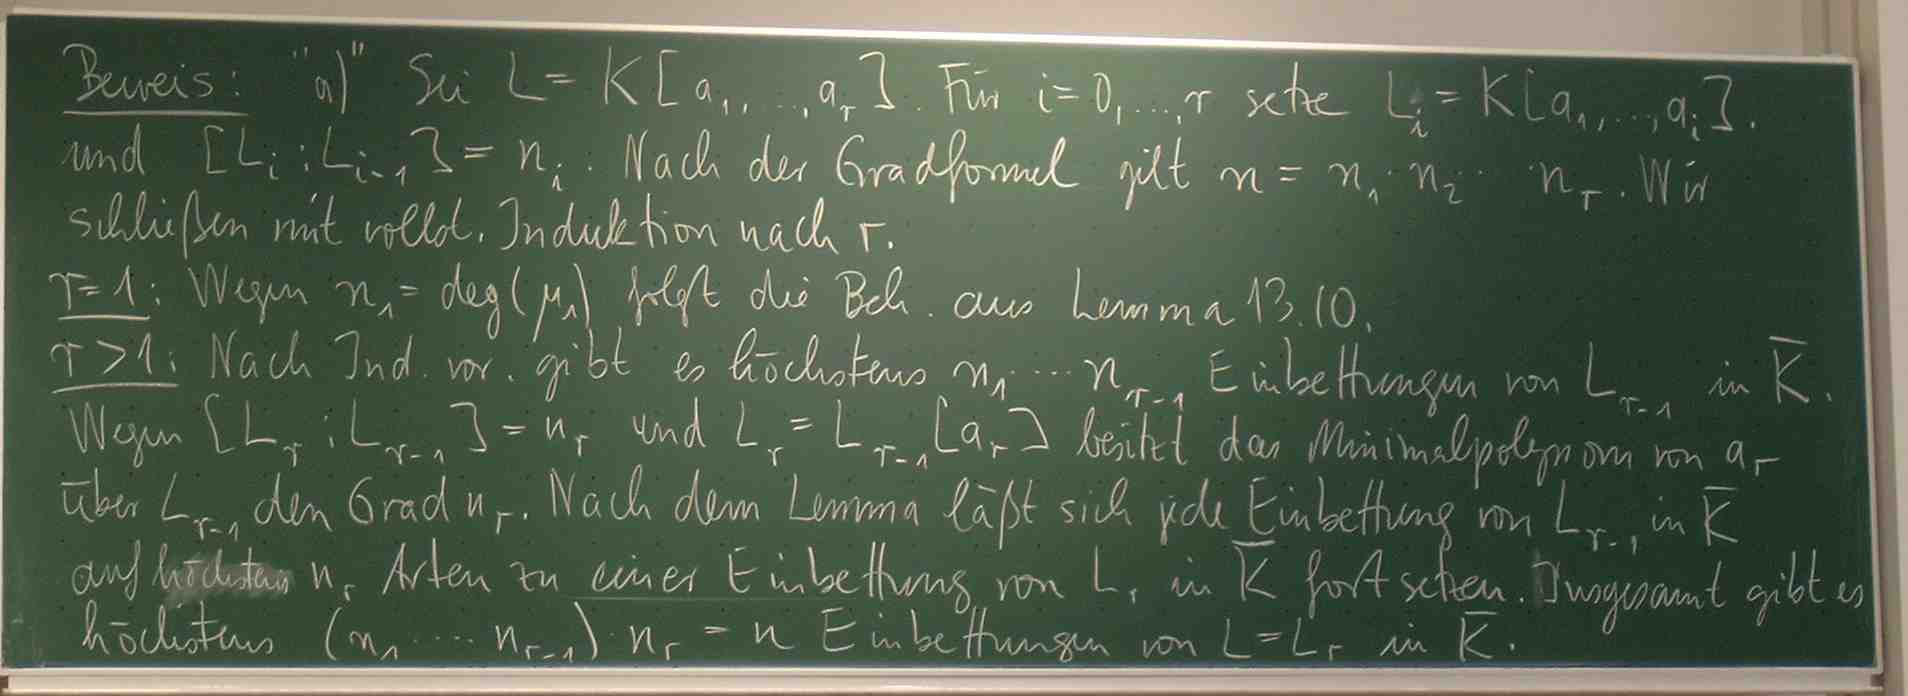 Beweis: "a)" Sei L = K[a₁,...,aᵣ]. Für i=0,...,r setze Lᵢ = K[a₁,...,aᵢ].
und [Lᵢ:Lᵢ₋₁] = nᵢ. Nach der Gradformel gilt n = n₁·n₂· ·nᵣ. Wir
schließen mit vollst. Induktion nach r.
r=1: Wegen n₁ = deg(μ₁) folgt die Beh. aus Lemma 13.10.
r>1: Nach Ind.vor. gibt es höchstens n₁·...·nᵣ₋₁ Einbettungen von Lᵣ₋₁ in K̅.
Wegen [Lᵣ:Lᵣ₋₁] = nᵣ und Lᵣ = Lᵣ₋₁[aᵣ] besitzt das Minimalpolynom von aᵣ
über Lᵣ₋₁ den Grad nᵣ. Nach dem Lemma läßt sich jede Einbettung von Lᵣ₋₁ in K̅
auf höchstens nᵣ Arten zu einer Einbettung von Lᵣ in K̅ fortsetzen. Insgesamt gibt es
höchstens (n₁·...·nᵣ₋₁)·nᵣ = n Einbettungen von L=Lᵣ in K̅.